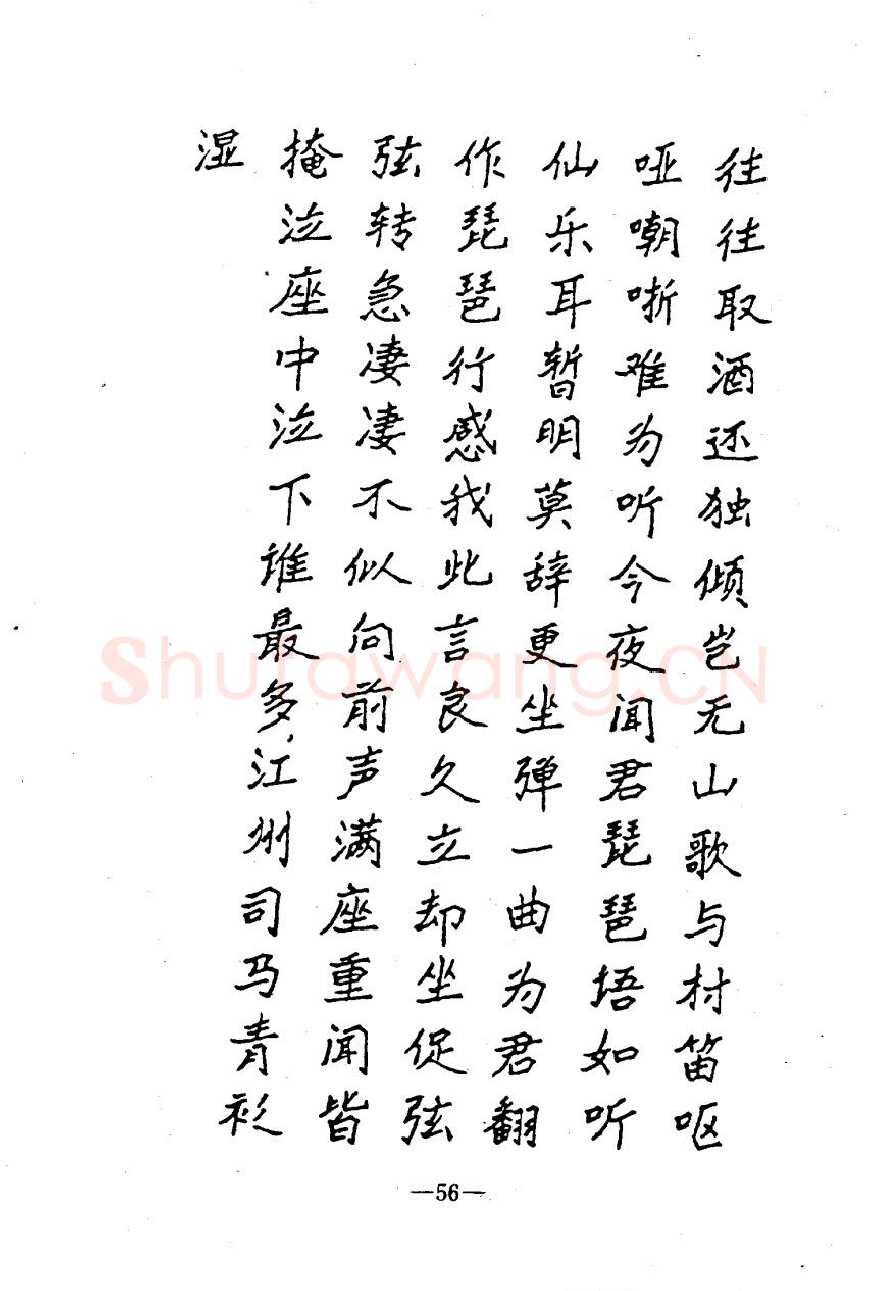 往往取酒还独倾岂无山歌与村笛呕
哑嘲哳难为听今夜闻君琵琶语如听
仙乐耳暂明莫辞更坐弹一曲为君翻
作琵琶行感我此言良久立却坐促弦
弦转急凄凄不似向前声满座重闻皆
掩泣座中泣下谁最多江州司马青衫
湿
—56—
Shufawang.CN